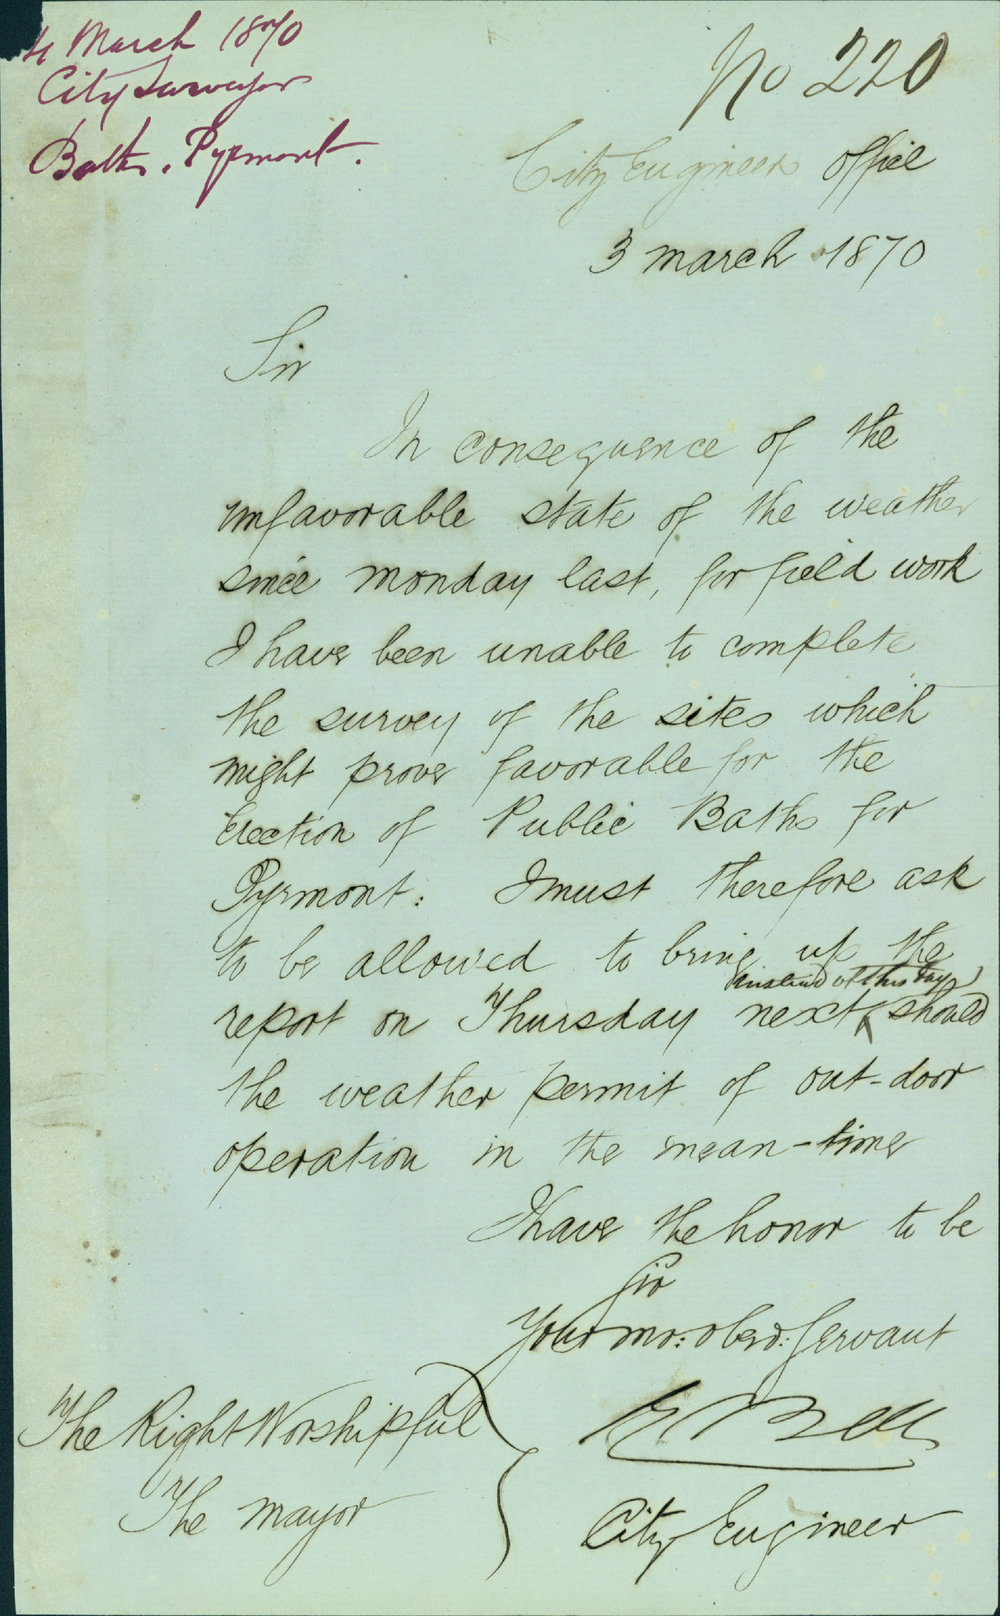 4 March 1870
City Surveyor
Baths. Pyrmont.
No 220
City Engineers Office
3 March 1870
Sir
In consequence of the
unfavorable state of the weather
since Monday last, for field work
I have been unable to complete
the survey of the sites which
might prove favorable for the
Erection of Public Baths for
Pyrmont: I must therefore ask
to be allowed to bring up the
(instead of this day)
report on Thursday next ^ should
the weather permit of out-door
operation in the mean-time
I have the honor to be
Sir
Your mo: obed: Servant
E Bell
City Engineer
The Right Worshipful
The Mayor